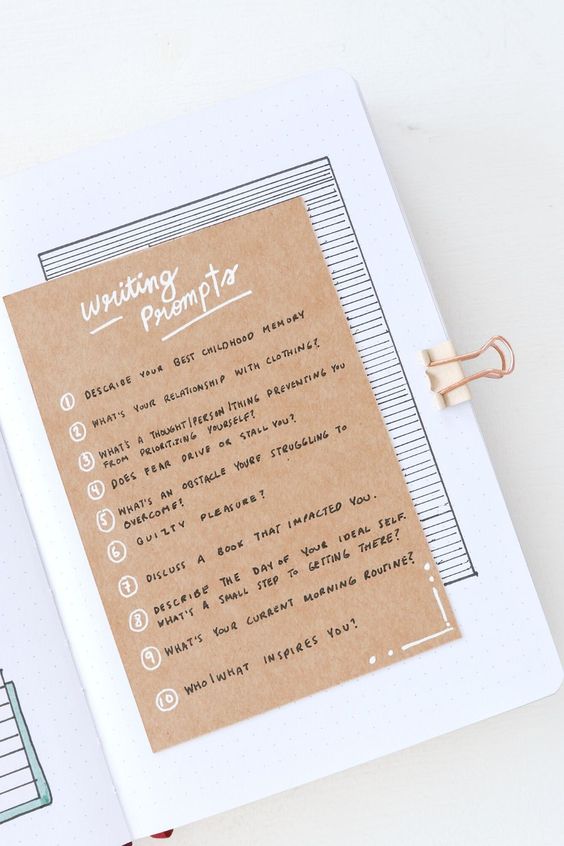 Writing
Prompts
1 DESCRIBE YOUR BEST CHILDHOOD MEMORY
2 WHAT'S YOUR RELATIONSHIP WITH CLOTHING?
3 WHAT'S A THOUGHT/PERSON/THING PREVENTING YOU
FROM PRIORITIZING YOURSELF?
4 DOES FEAR DRIVE OR STALL YOU?
5 WHAT'S AN OBSTACLE YOURE STRUGGLING TO
OVERCOME?
6 GUILTY PLEASURE?
7 DISCUSS A BOOK THAT IMPACTED YOU.
8 DESCRIBE THE DAY OF YOUR IDEAL SELF.
WHAT'S A SMALL STEP TO GETTING THERE?
9 WHAT'S YOUR CURRENT MORNING ROUTINE?
10 WHO/WHAT INSPIRES YOU?